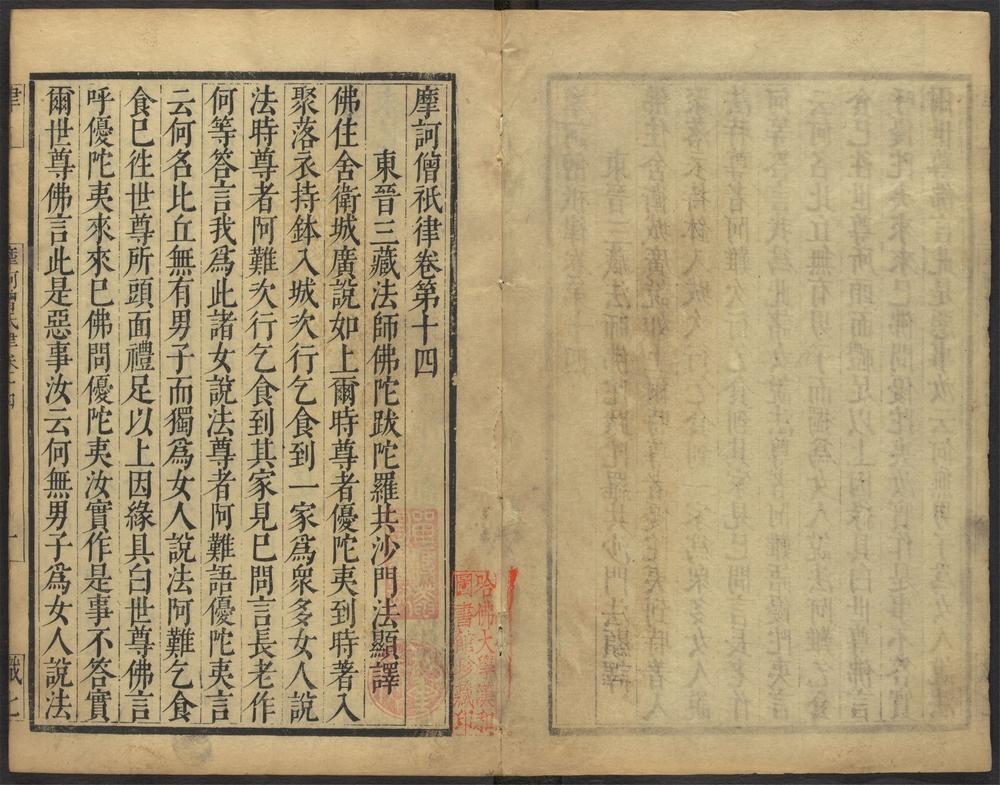 摩訶僧祇律卷第十四
東晉三藏法師佛陀跋陀羅共沙門法顯譯
佛住舍衛城廣說如上爾時尊者優陀夷到時著入
聚落衣持鉢入城次行乞食到一家爲衆多女人說
法時尊者阿難次行乞食到其家見已問言長老作
何等答言我爲此諸女說法尊者阿難語優陀夷言
云何名比丘無有男子而獨爲女人說法阿難乞食
食已徃世尊所頭面禮足以上因緣具白世尊佛言
呼優陀夷來來已佛問優陀夷汝實作是事不答實
爾世尊佛言此是惡事汝云何無男子爲女人說法
哈佛大學漢和
圖書館珍藏印